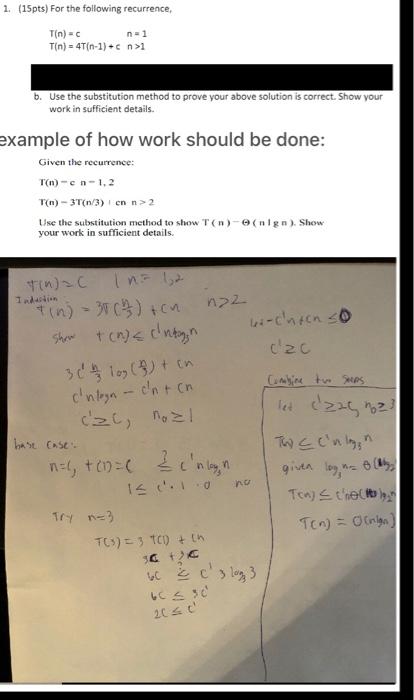 1. (15pts) For the following recurrence,
T(n) = c n = 1
T(n) = 4T(n-1) + c n>1
b. Use the substitution method to prove your above solution is correct. Show your
work in sufficient details.
example of how work should be done:
Given the recurrence:
T(n) = c n = 1, 2
T(n) = 3T(n/3) + cn n > 2
Use the substitution method to show T ( n ) = Θ ( n l g n ). Show
your work in sufficient details.
T(n) = C | n = 1,2
Induction
T(n) = 3T(n/3) + cn n>2
Show T(n) ≤ c'nlog₃n
3c' n/3 log(n/3) + cn
c'nlogn - c'n + cn
c' ≥ c, n₀ ≥ 1
base case:
n=1, T(1)=C ≤? c'nlog₃n
1 ≤ c'·1·0 no
Try n=3
T(3) = 3T(1) + cn
3C + 3C
6C ≤? c'3log₃3
6C ≤ 3c'
2C ≤ c'
-c'n+cn ≤ 0
c' ≥ c
Combine two steps
let c' ≥ 2c, n₀ ≥ 3
T(n) ≤ c'nlog₃n
given log₃n =
T(n) ≤
T(n) = O(nlgn)